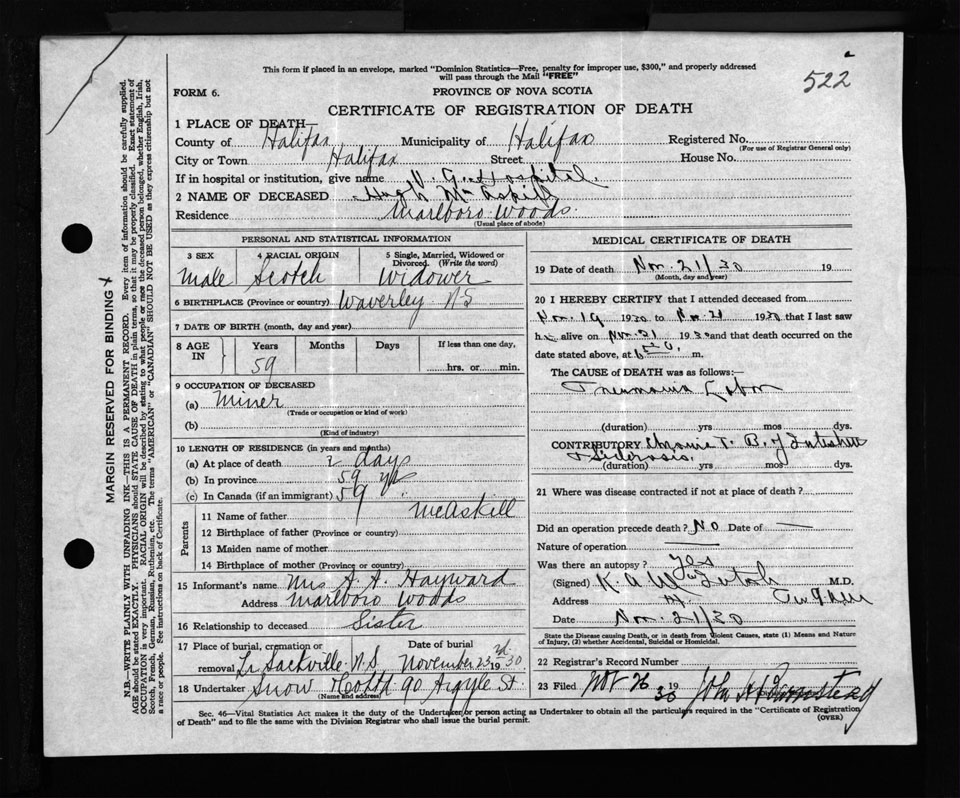 This form if placed in an envelope, marked "Dominion Statistics—Free, penalty for improper use, $300," and properly addressed
will pass through the Mail "FREE"
522
FORM 6.
PROVINCE OF NOVA SCOTIA
CERTIFICATE OF REGISTRATION OF DEATH
1 PLACE OF DEATH
County of Halifax Municipality of Halifax Registered No.
(For use of Registrar General only)
City or Town Halifax Street House No.
If in hospital or institution, give name V. G. Hospital.
2 NAME OF DECEASED Hugh McAskill
Residence Marlboro Woods
(Usual place of abode)
PERSONAL AND STATISTICAL INFORMATION
3 SEX 4 RACIAL ORIGIN 5 Single, Married, Widowed or
Divorced. (Write the word)
Male Scotch Widower
6 BIRTHPLACE (Province or country) Waverley NS
7 DATE OF BIRTH (month, day and year)
8 AGE IN Years Months Days If less than one day,
59 hrs. or min.
9 OCCUPATION OF DECEASED
(a) Miner
(Trade or occupation or kind of work)
(b)
(Kind of industry)
10 LENGTH OF RESIDENCE (in years and months)
(a) At place of death 2 days
(b) In province 59 yrs
(c) In Canada (if an immigrant) 59 "
Parents
11 Name of father McAskill
12 Birthplace of father (Province or country)
13 Maiden name of mother
14 Birthplace of mother (Province or country)
15 Informant's name Mrs A. A. Hayward
Address Marlboro Woods
16 Relationship to deceased Sister
17 Place of burial, cremation or Date of burial
removal Lr Sackville N.S. November 23rd 1930
18 Undertaker Snow & Co Ltd 90 Argyle St.
(Name and address)
MEDICAL CERTIFICATE OF DEATH
19 Date of death Nov. 21/30 19
(Month, day and year)
20 I HEREBY CERTIFY that I attended deceased from
Nov. 19 1930 to Nov. 21 1930 that I last saw
h alive on Nov. 21 1930 and that death occurred on the
date stated above, at 6 m.
The CAUSE of DEATH was as follows:—
Pneumonia Lobar
(duration) yrs mos dys.
CONTRIBUTORY Chronic T. B. &
(duration) yrs mos dys.
21 Where was disease contracted if not at place of death?
Did an operation precede death? No Date of —
Nature of operation —
Was there an autopsy? Yes
(Signed) K. A. M.D.
Address
Date Nov. 21/30
State the Disease causing Death, or in death from Violent Causes, state (1) Means and Nature
of Injury, (2) whether Accidental, Suicidal or Homicidal.
22 Registrar's Record Number
23 Filed Nov 26 1930 John
Sec. 46—Vital Statistics Act makes it the duty of the Undertaker or person acting as Undertaker to obtain all the particulars required in the "Certificate of Registration
of Death" and to file the same with the Division Registrar who shall issue the burial permit.
(OVER)
MARGIN RESERVED FOR BINDING
N.B.—WRITE PLAINLY WITH UNFADING INK—THIS IS A PERMANENT RECORD. Every item of information should be carefully supplied.
AGE should be stated EXACTLY. PHYSICIANS should STATE CAUSE OF DEATH in plain terms, so that it may be properly classified. Exact statement of
OCCUPATION is very important. RACIAL ORIGIN will be described by stating to what people or race the deceased person belonged, whether English, Irish,
Scotch, French, German, Russian, Ruthenian, etc. The terms "AMERICAN" or "CANADIAN" SHOULD NOT BE USED as they express citizenship but not
a race or people. See instructions on back of Certificate.